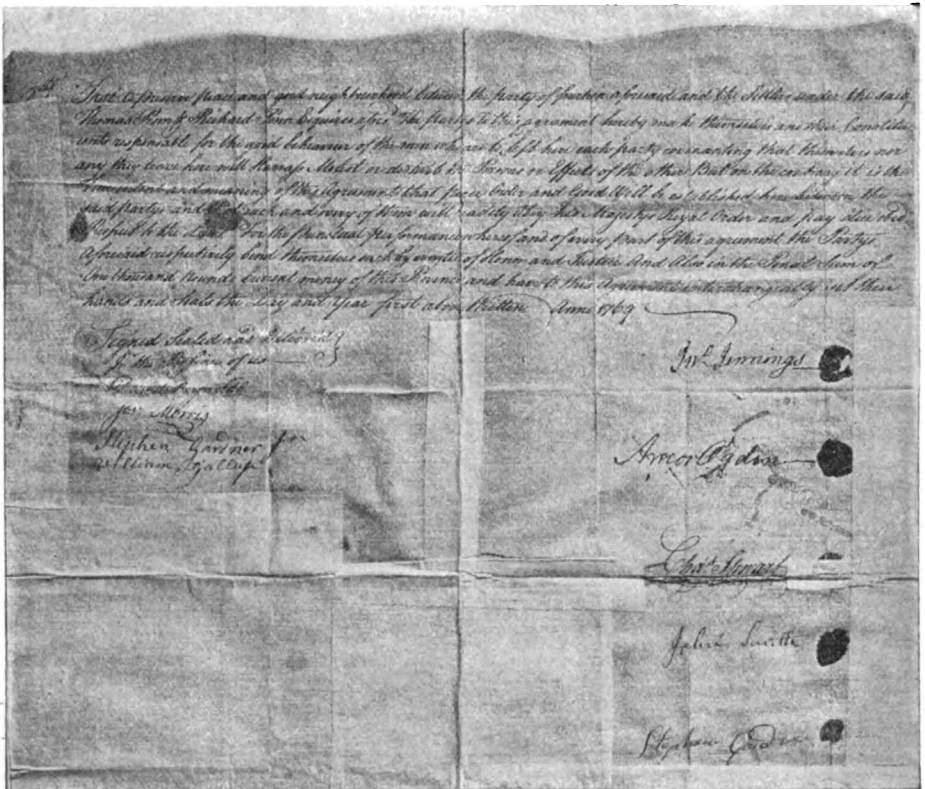 5th That to preserve peace and good neighbourhood between the party of  aforesaid and the Settlers under the said
Thomas Penn & Richard Penn Esquires afsd. the parties to this agrament hereby make themselves and their Constitu
ents responsible for the good behaviour of the men who are to be left here each party covenanting that  nor
any they leave here will Harrass Molest or disturb the Persons or Effects of the other But on the contrary it is the
True intent and meaning of this Agrament that peace Order and Good Will be established here between the
said partys and  each and every of them will readily Obey his Majestys Royal Order and pay due obe
Respect to the Laws For the punctual performance hereof and of every part of this agreement the Partys
Aforesaid respectively bind themselves each by  of Honour and Justice And Also in the Penal Sum of
One thousand Pounds current money of this Province and have to this Agrament interchangeably set their
hands and Seals the Day and Year first above Written Anno 1769
Signed Sealed and Delivered
In the Presence of us
Jos. Morris
Stephen Gardner Jun
William Gallup
Jno. Jennings
Amos Ogden
Chas. Stewart
John Smith
Stephen Gardner